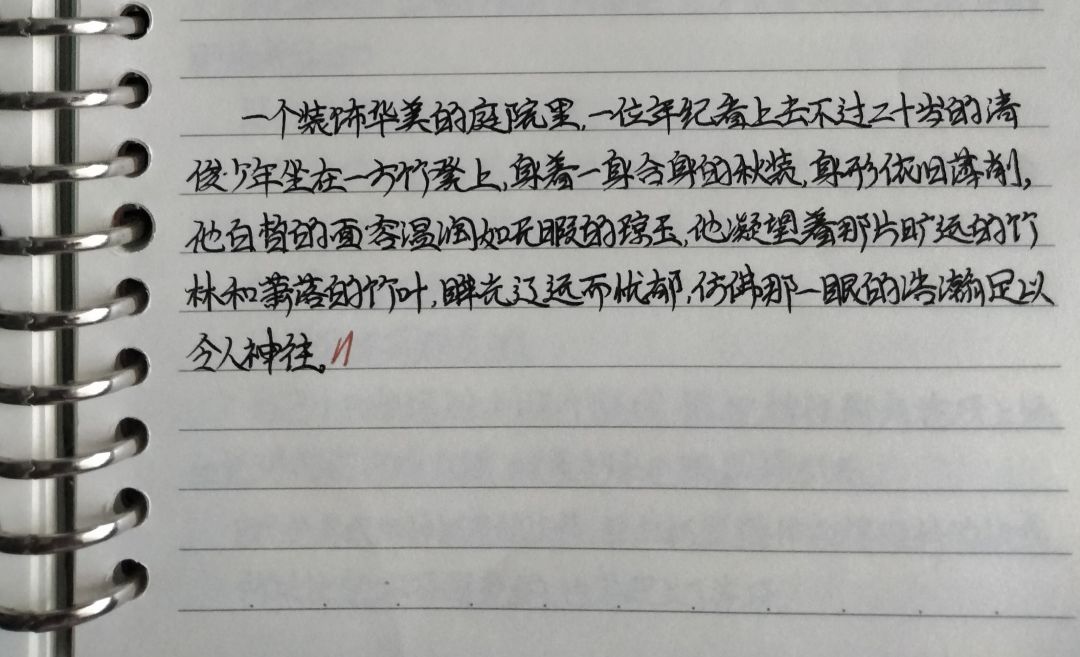 一个装饰华美的庭院里,一位年纪看上去不过二十岁的清
俊少年坐在一方竹凳上,身着一身合身的秋装,身形依旧薄削,
他白皙的面容温润如无暇的琼玉,他凝望着那片旷远的竹
林和萧落的竹叶,眸光辽远而忧郁,仿佛那一眼的浩瀚足以
令人神往。